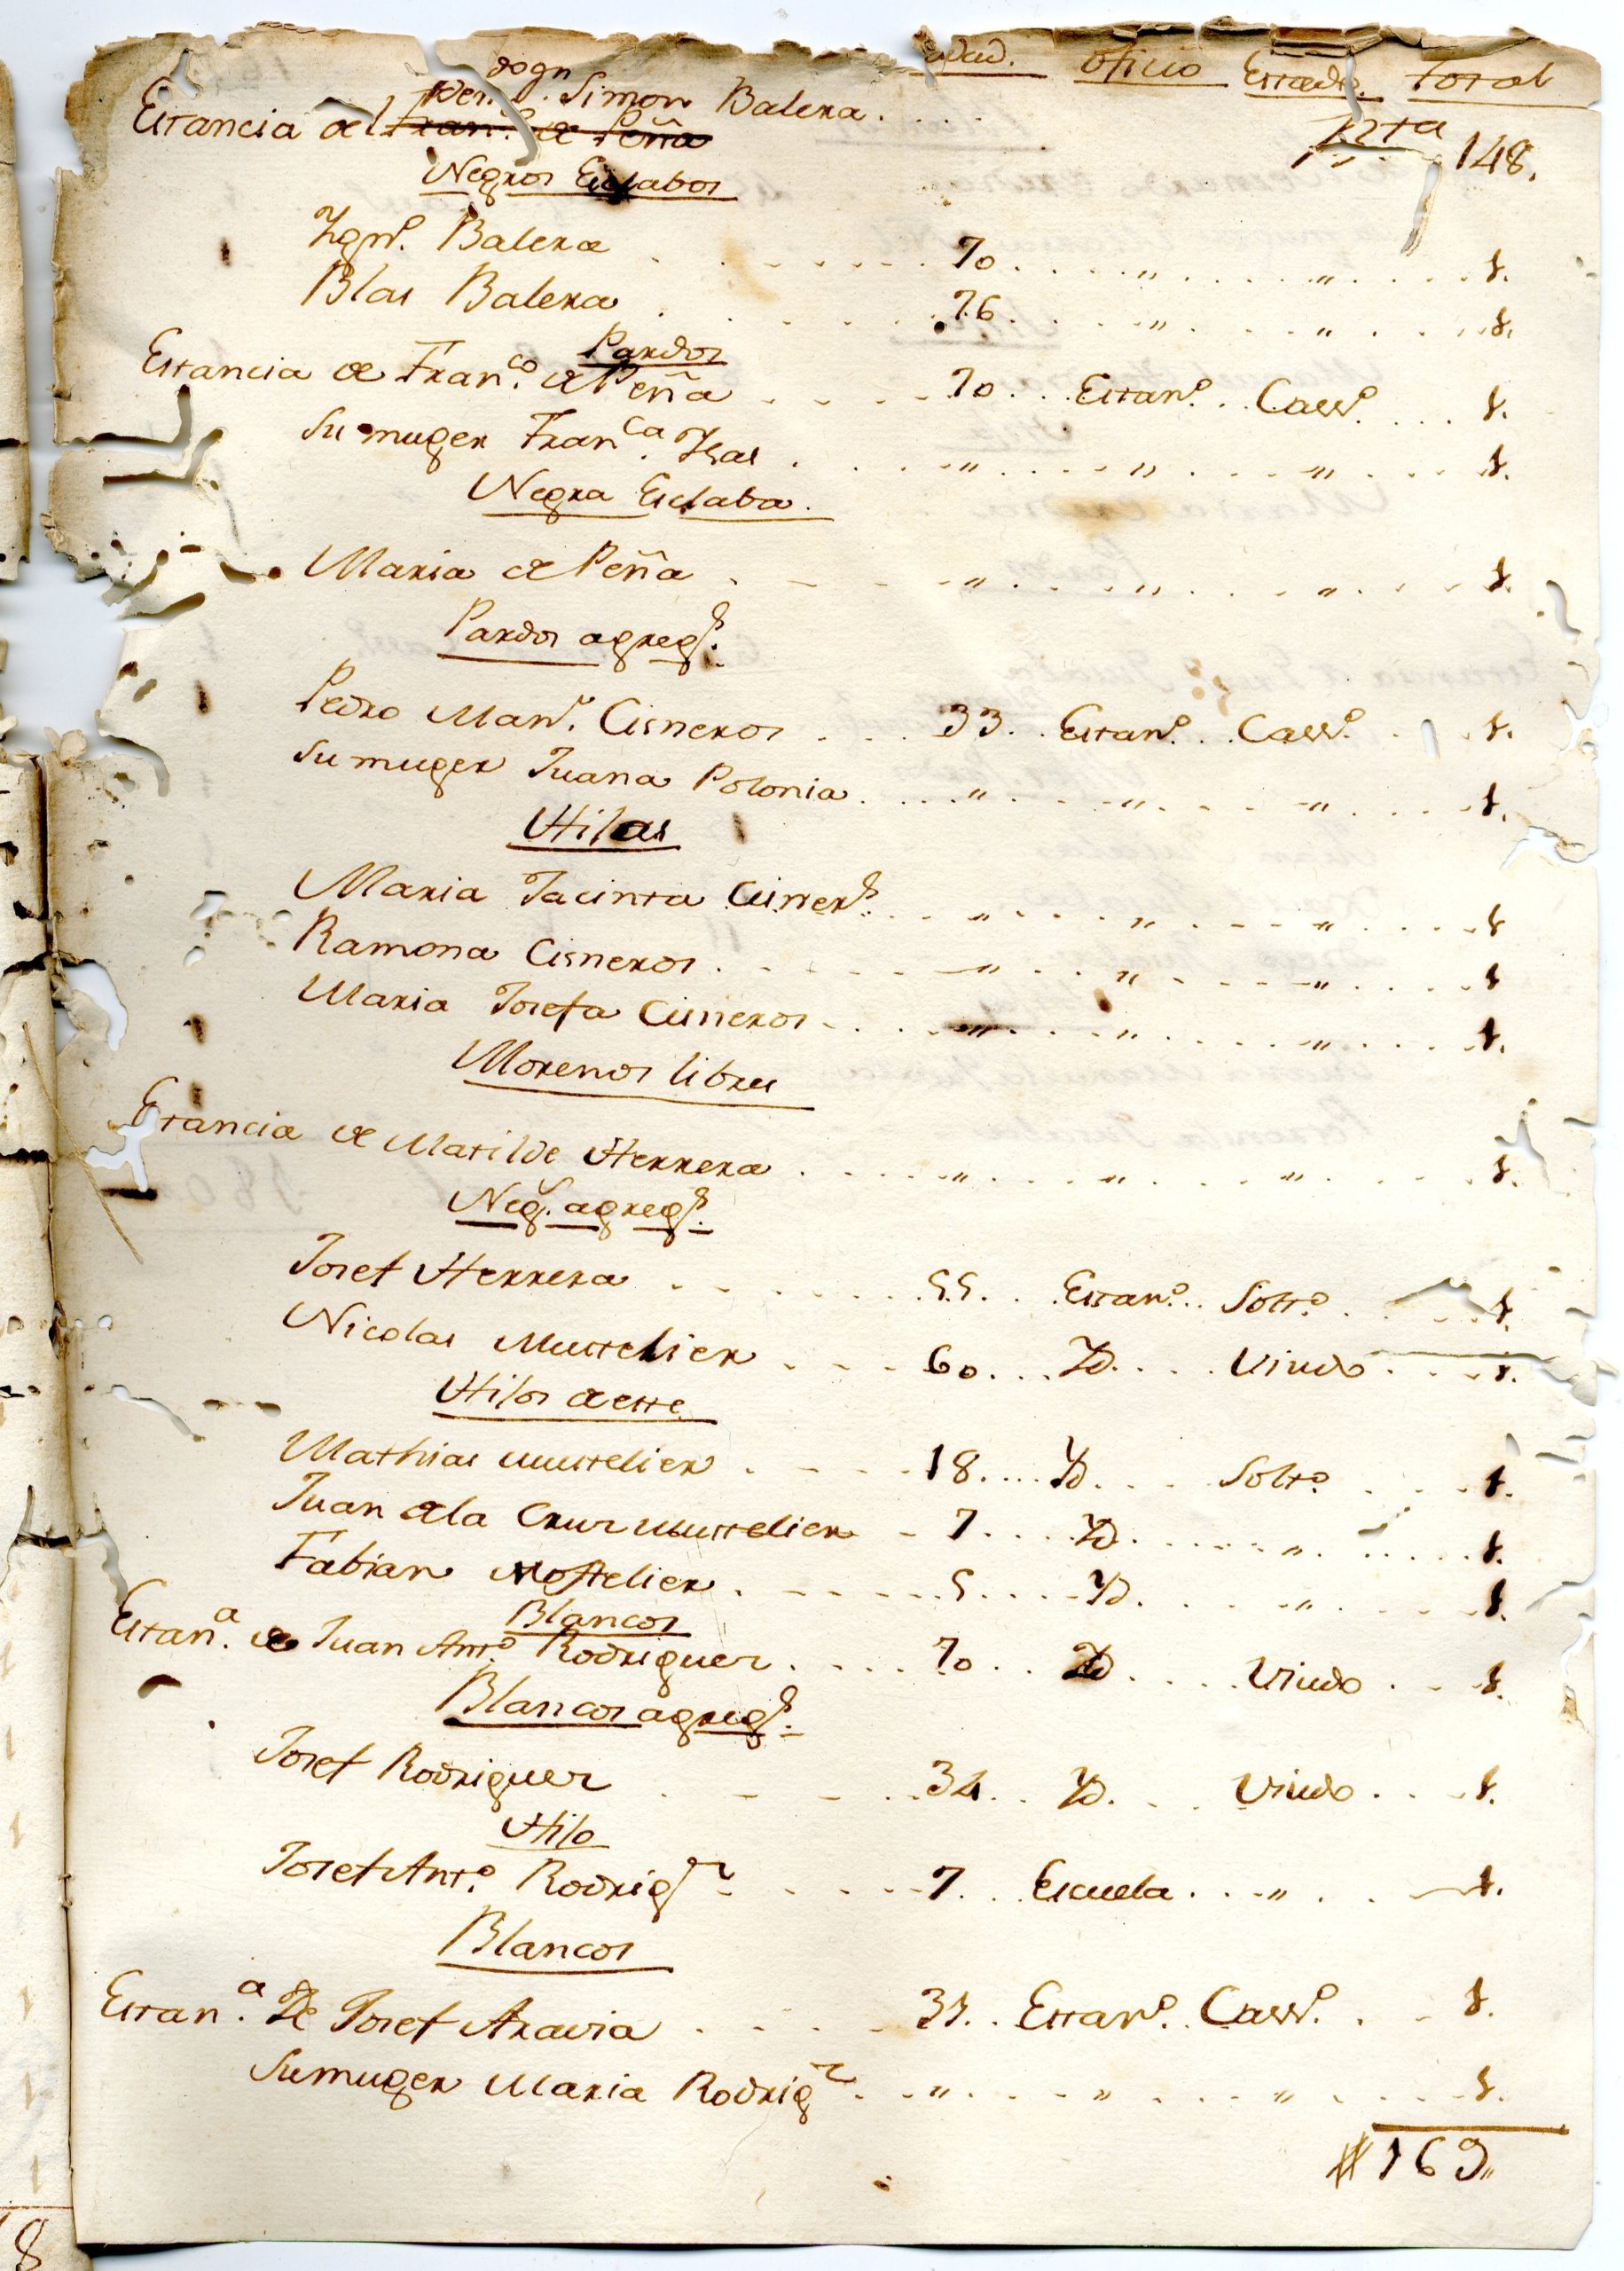 edad. Oficio Estado. Total
dogn
Estancia del Simon Balera . . . .
Franco de Peña
148.
Negros Esclabos
Ygno. Balera 70 " " 1.
Blas Balera 76 " " 1.
Pardos
Estancia de Franco. de Peña 70 Estano. Casdo. 1.
Su muger Franca. Ysas " " " 1.
Negra Esclaba.
Maria de Peña " " " 1.
Pardos agregs.
Pedro Manl. Cisneros 33. Estano. Casdo. 1.
Su muger Juana Polonia " " " 1.
Hijas
Maria Jacinta Cisners. " " " 1
Ramona Cisneros " " " 1
Maria Josefa Cisneros " " " 1.
Morenos libres
Estancia de Matilde Herrera " " " 1.
Negs. agregs.
Josef Herrera 55. Estano. Solto. 1.
Nicolas Mustelier 60. Yd. Viudo 1.
Hijos de este
Mathias Mustelier 18. Yd. Solto. 1.
Juan dela Cruz Mustelier 7. Yd. " 1.
Fabian Mostelier 5 Yd. " 1.
Blancos
Estana. de Juan Anto. Rodriguez 70 Yd. Viudo 1.
Blancos agregs.
Josef Rodriguez 34. Yd. Viudo 1.
Hijo
Josef Anto. Rodrigz. 7. Escuela " 1.
Blancos
Estana. De Josef Aravia 35. Estano. Casdo. 1.
Su muger Maria Rodrigz. " " " 1.
#169"
8